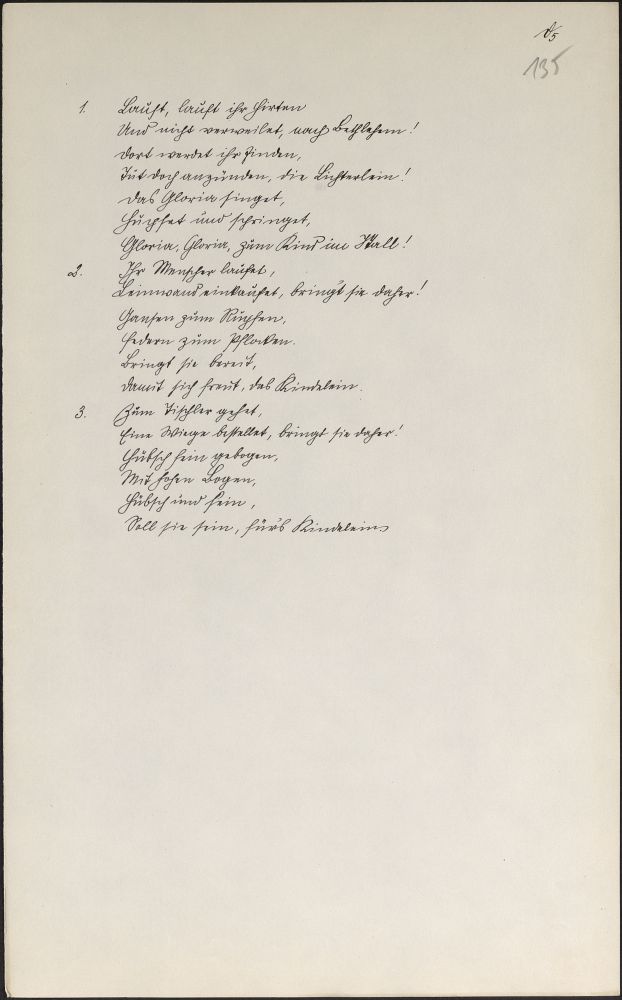 A5
135
1. Lauft, lauft ihr Hirten
Und nicht verweilet, nach Bethlehem!
Dort werdet ihr finden,
Tut doch anzünden, die Lichterlein!
Das Gloria singet,
Hüpfet und springet,
Gloria, Gloria, zum Kind im Stall!
2. Ihr Menscher laufet,
Leinwand einkaufet, bringt sie daher!
Gansen zum Rupfen,
Federn zum Pflocken.
Bringt sie bereit,
Damit sich freut, das Kindelein.
3. Zum Tischler gehet,
Eine Wiege bestellet, bringt sie daher!
Hübsch fein gebogen,
Mit hohen Bogen,
Hübsch und fein,
Soll sie sein, für's Kindelein.